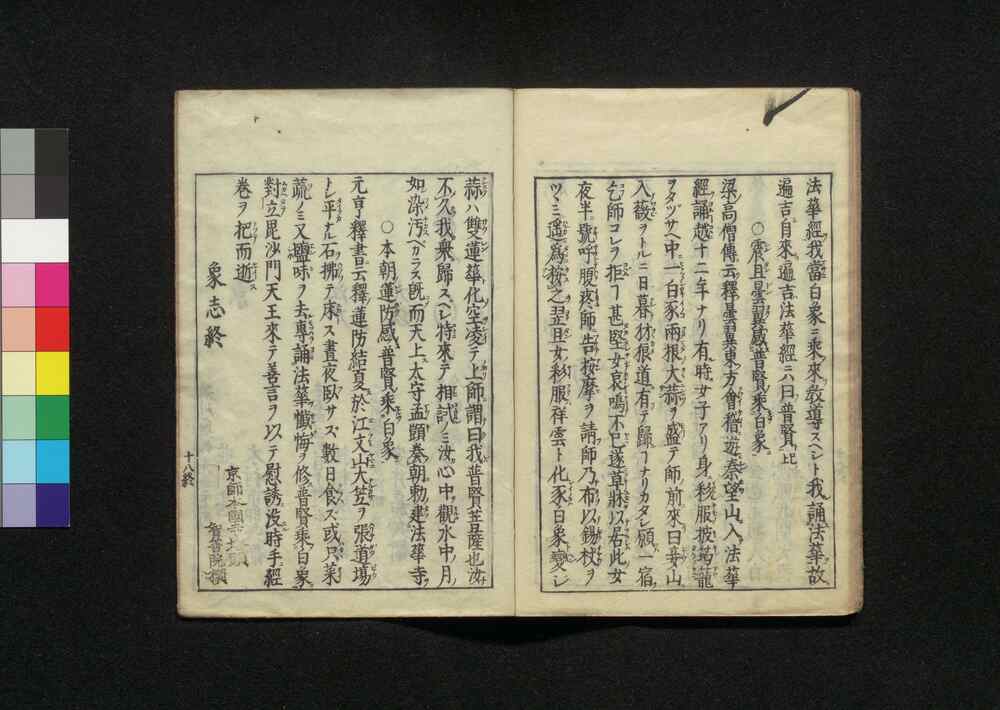 法華經我當白象ニ乘來教導スヘシト我誦法華故
遍吉自來遍吉法華經ニハ曰普賢比
○震旦曇翼感普賢乘白象
梁高僧傳云釋曇翼東方僧後遊秦望山入法華
經誦越十二年ナリ有時女子アリ身彩服披筠籠
ヲタヅサヘ中一白豕兩根大蒜ヲ盛テ師前來曰妾山
入薇ヲトルニ日暮豺狼道有テ歸ヿナリカタシ願一宿
乞師コレヲ拒ヿ甚堅女哀鳴不已遂草牀以居此女
夜半號呼腹疼師告按摩ヲ請師乃布以錫杖ヲ
ツヽミ遥為按之翌旦女彩服祥雲ト化豕白象變シ
蒜ハ雙蓮華化空凌テ上師謂曰我普賢菩薩也汝
不久我衆歸スベシ特來テ相試ノミ汝心中觀水中ノ月
如染汚ベカラス既而天上太守孟顗奏朝勅建法華寺
○本朝蓮防感普賢乘白象
元亨釋書云釋蓮防結夏於江文山大笠ヲ張道場
トシ平ナル石拂テ床ス晝夜臥サズ數日食ス或只菜
蔬ノミ又鹽味ヲ去專誦法華懺悔ヲ修普賢乘白象
對立毘沙門天王來テ善言ヲ以テ慰誘没時手經
卷ヲ把而逝
象志終
十八終
京師本國寺